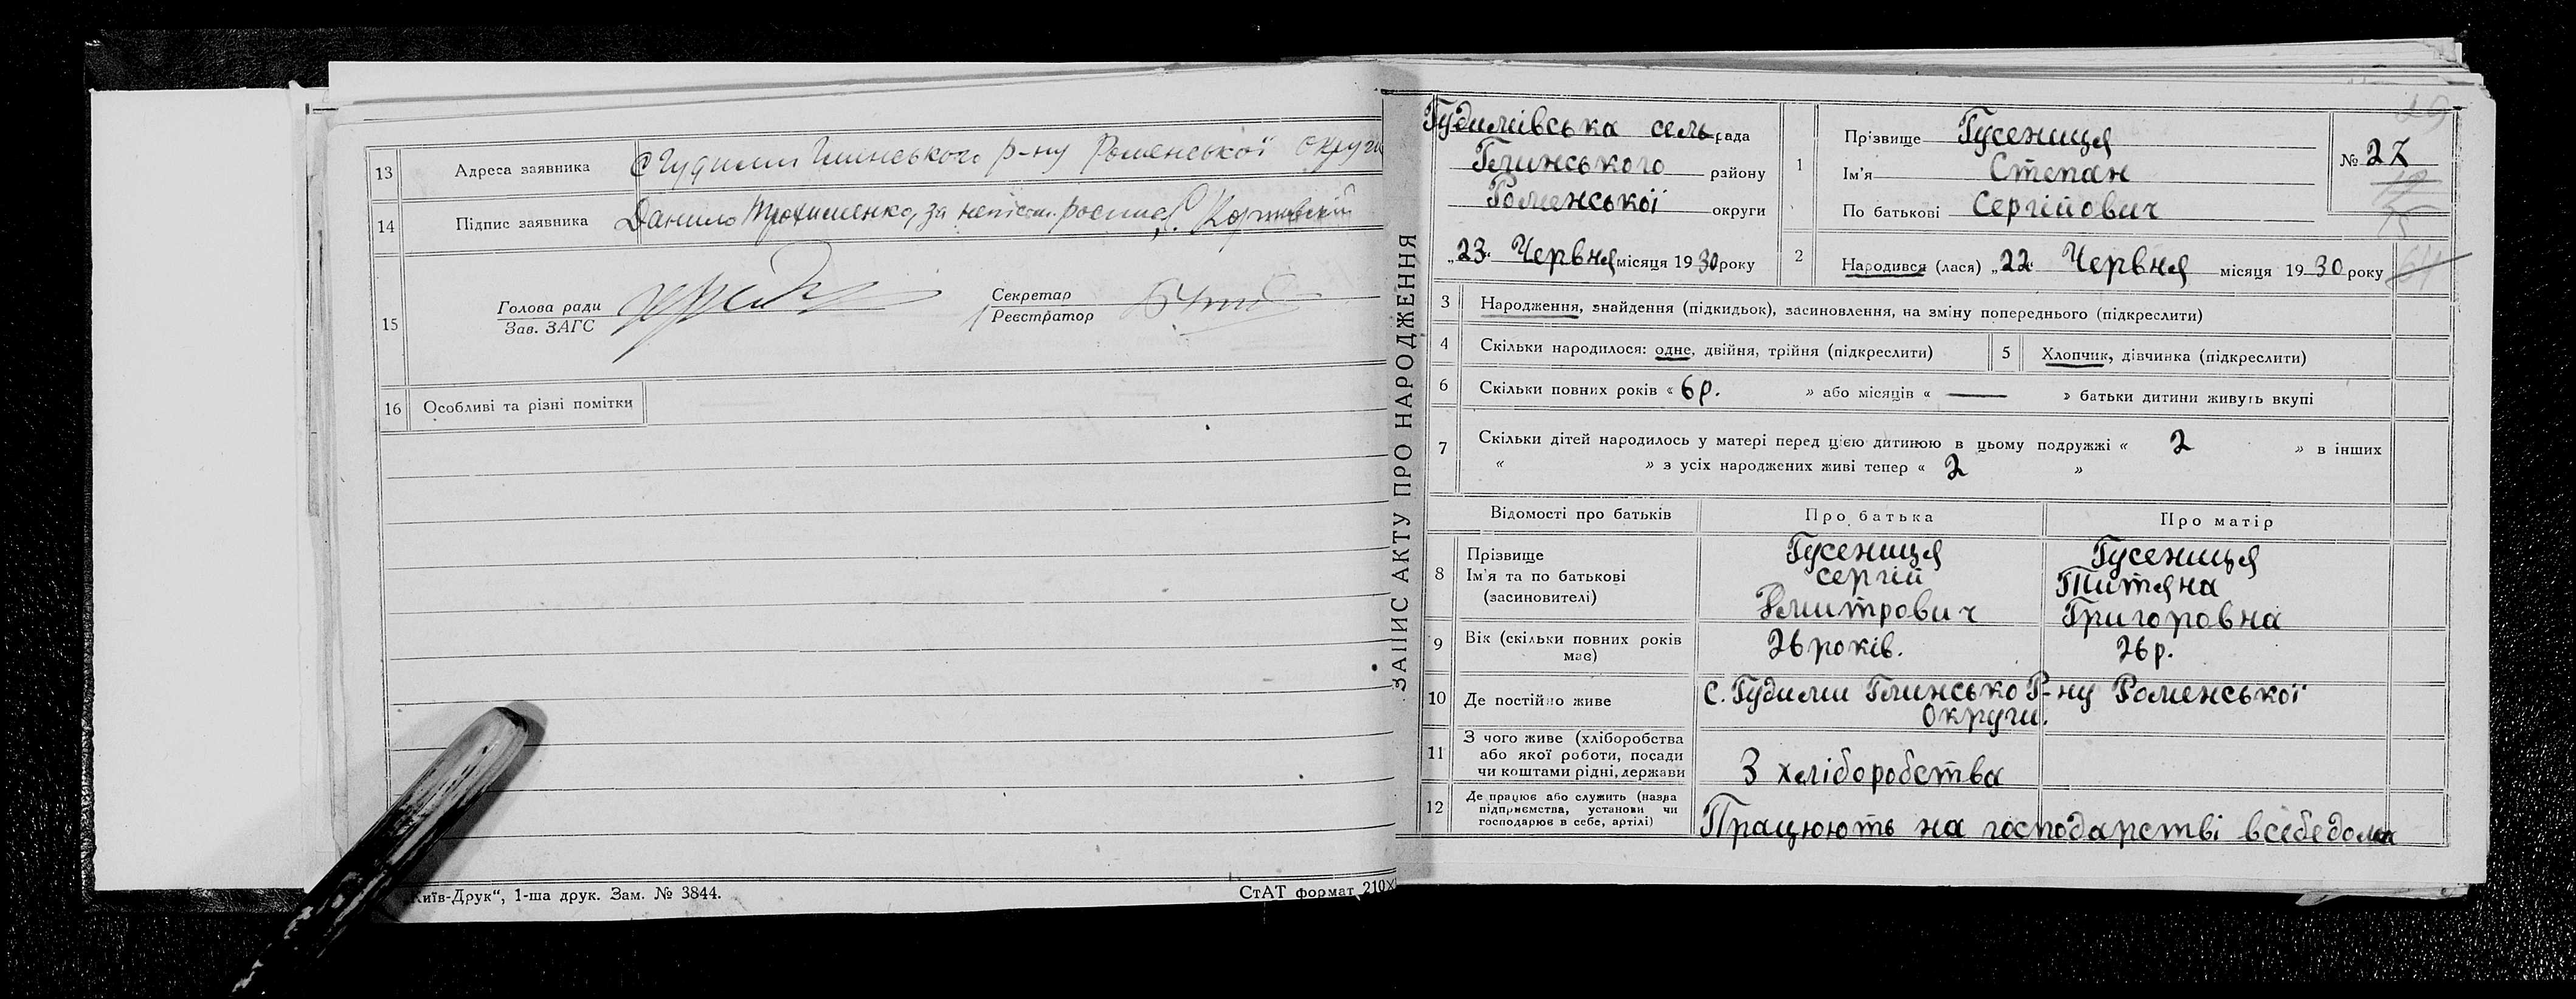 13 Адреса заявника с Гудими Глинського р-ну Роменської округи
14 Підпис заявника Данило Трохименко, за неписьм. росписався
15 Голова ради
Зав. ЗАГС
Секретар
Реєстратор
16 Особливі та різні помітки
„Київ-Друк“, 1-ша друк. Зам. № 3844.
СтАТ формат 210×
ЗАПИС АКТУ ПРО НАРОДЖЕННЯ
Гудимівська сельрада
Глинського району
Роменської округи
„23“ Червня місяця 1930 року
1 Прізвище Гусениця
Ім'я Степан
По батькові Сергійович
№ 27
2 Народився (лася) „22“ Червня місяця 1930 року
3 Народження, знайдення (підкидьок), засиновлення, на зміну попереднього (підкреслити)
4 Скільки народилося: одне, двійня, трійня (підкреслити) 5 Хлопчик, дівчинка (підкреслити)
6 Скільки повних років « 6 р. » або місяців « — » батьки дитини живуть вкупі
7 Скільки дітей народилось у матері перед цією дитиною в цьому подружжі « 2 » в інших
« » з усіх народжених живі тепер « 2 »
Відомості про батьків Про батька Про матір
8 Прізвище
Ім'я та по батькові
(засиновителі)
Гусениця
Сергій
Дмитрович
Гусениця
Титяна
Григоровна
9 Вік (скільки повних років має) 26 років. 26 р.
10 Де постійно живе с. Гудими Глинсько Р-ну Роменської
Округи.
11 З чого живе (хліборобства
або якої роботи, посади
чи коштами рідні, держави
З хліборобства
12 Де працює або служить (назва
підприємства, установи чи
господарює в себе, артілі)
Працюють на господарстві всебе дома